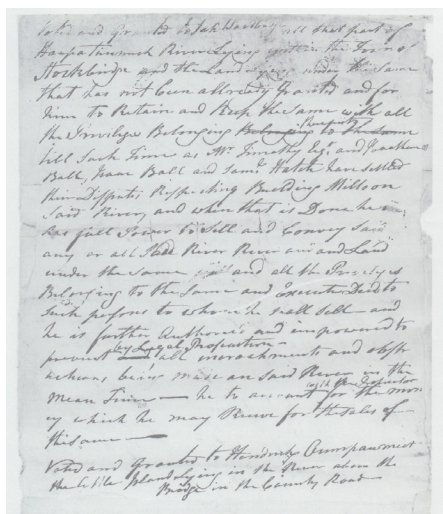 Voted and granted to Jah Woodbridge all that part of
Houpatunnuck River Lying within the Town of
Stockbridge and the Land lying under the Same
that has not been allready Granted and for
him to Retain and Keep the Same with all
the Priviliges Belonging Belonging to the Same
till Such Time as Mr. Timothy and Jonathan
Ball, Isaac Ball and Saml. Hatch have settled
their Disputes Respecting Building Mills on
Said River, and when that is Done he
has full Power to Sell and Convey Said
any or all River River and Land
under the Same and all the
Belonging to the Same and Execute Deeds to
Such persons to whom he shall Sell and
he is further Authoried and impowered to
by Legal Prosecution
prevent all incroachments and obstr
uctions being made on said River in the
mean Time — he to account with the Propriator for the mon
ey which he may Receive for the Sales of
the Same —
Voted and granted to Hendrick
the Little Island lying in the River above the
Bridge in the County Road